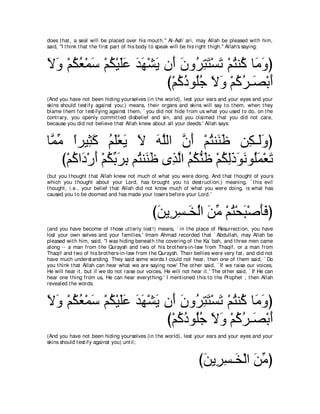 does that, a seal will be placed over his mouth.'' Al-Ash`ari, may Allah be pleased with him,
said, "I think that the first part of his body to speak will be his right thigh.'' Allah's saying:
(وَمَا كُنتُمْ تَسْتَتِرُونَ أَن يَشْهَدَ عَلَيْكُمْ سَمْعُكُمْ وَلاَ
أَبْصَـرُكُمْ وَلاَ جُلُودُكُمْ)
(And you have not been hiding yourselves (in the world), lest your ears and your eyes and your
skins should testify against you;) means, their organs and skins will say to them, when they
blame them for testifying against them, `you did not hide from us what you used to do, on the
contrary, you openly committed disbelief and sin, and you claimed that you did not care,
because you did not believe that Allah knew about all your deeds.' Allah says:
(وَلَـكِن ظَنَنتُمْ أَنَّ اللَّهَ لاَ يَعْلَمُ كَثِيراً مِّمَّا
تَعْمَلُونَوَذَلِكُمْ ظَنُّكُمُ الَّذِى ظَنَنتُم بِرَبِّكُمْ أَرْدَاكُمْ)
(but you thought that Allah knew not much of what you were doing. And that thought of yours
which you thought about your Lord, has brought you to destruction;) meaning, `this evil
thought, i.e., your belief that Allah did not know much of what you were doing, is what has
caused you to be doomed and has made your losers before your Lord.'
(فَأَصْبَحْتُمْ مِّنَ الْخَـسِرِينَ)
(and you have become of those utterly lost!) means, `in the place of Resurrection, you have
lost your own selves and your families.' Imam Ahmad recorded that `Abdullah, may Allah be
pleased with him, said, "I was hiding beneath the covering of the Ka`bah, and three men came
along -- a man from the Quraysh and two of his brothers-in-law from Thaqif, or a man from
Thaqif and two of his brothers-in-law from the Quraysh. Their bellies were very fat, and did not
have much understanding. They said some words I could not hear, then one of them said, `Do
you think that Allah can hear what we are saying now' The other said, `If we raise our voices,
He will hear it, but if we do not raise our voices, He will not hear it.' The other said, `If He can
hear one thing from us, He can hear everything.' I mentioned this to the Prophet , then Allah
revealed the words:
(وَمَا كُنتُمْ تَسْتَتِرُونَ أَن يَشْهَدَ عَلَيْكُمْ سَمْعُكُمْ وَلاَ
أَبْصَـرُكُمْ وَلاَ جُلُودُكُمْ)
(And you have not been hiding yourselves (in the world), lest your ears and your eyes and your
skins should testify against you) until;
(مِّنَ الْخَـسِرِينَ)